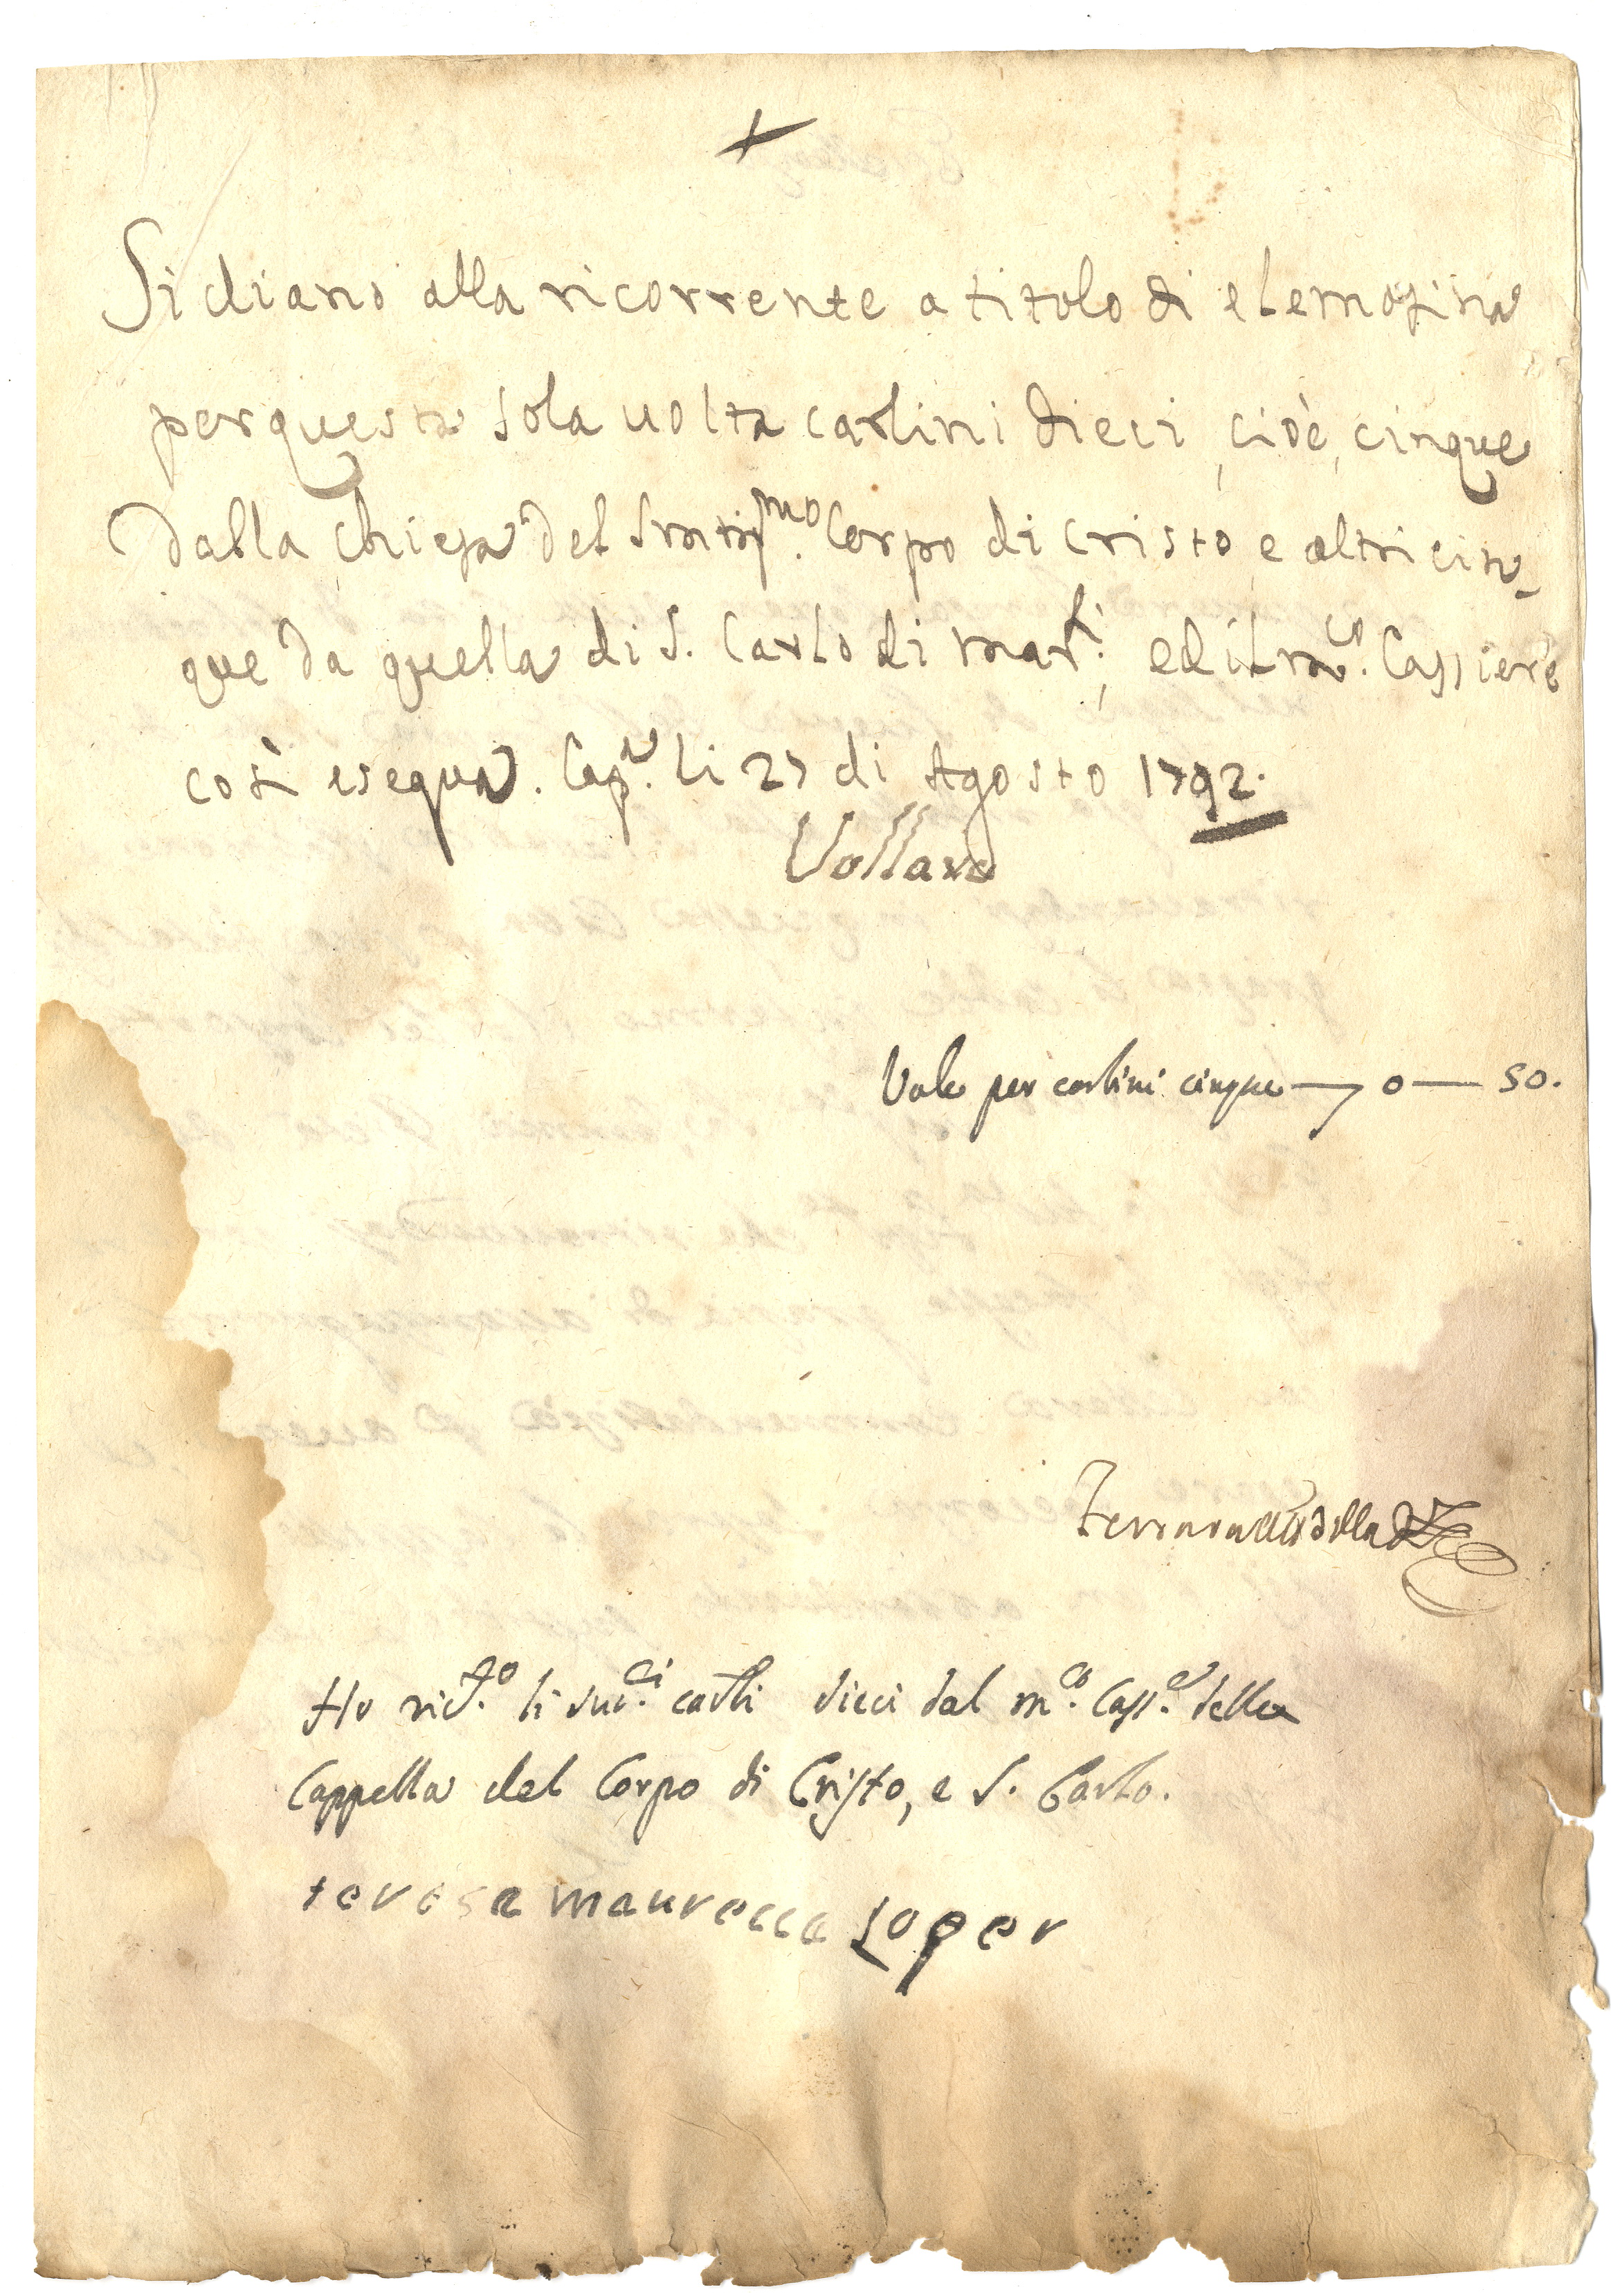 Si diano alla ricorrente a titolo di elemosina
per questa sola uolta carlini dieci, cioè, cinque
dalla chiesa del Corpo di Cristo, e altri cin-
que da quella di S. Carlo di mar.ti, ed il m.co Cassiere
così esequa. Cap.a li 27 di Agosto 1792.
Vollaro
Vale per carlini cinque — 0 — 50.
Ferrara
Ho ric.to li sud.ti carli dieci dal m.co Cass.e della
Cappella del Corpo di Cristo, e S. Carlo.
teresa maurecca Loper